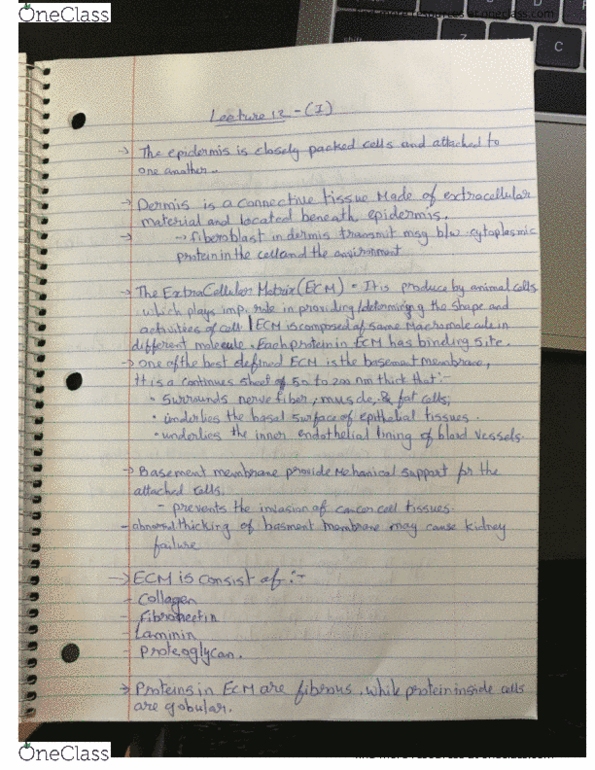 OneClass
find more resources at oneclass.com
shift
Z
C
Lecture 12 - (I)
→ The epidermis is closely packed cells and attached to
one another..
→ Dermis is a connective tissue Made of extracellular
material and located beneath epidermis.
→ → fiberoblast in dermis transmit msg b/w cytoplasmic
protein in the cell and the environment
→ The ExtraCellular Matrix (ECM) = It is produce by animal cells
which plays imp. role in providing/determining the shape and
activities of cell | ECM is composed of same Macromolecule in
different molecule. Each protein in ECM has binding site.
→ one of the best defined ECM is the basement membrane,
It is a continues sheet of 50 to 200 nm thick that:-
• Surrounds nerve fiber, muscle, & fat cells;
• underlies the basal surface of epithelial tissues.
• underlies the inner endothelial lining of blood vessels.
→ Basement membrane provide Mechanical support for the
attached cells.
- prevents the invasion of cancer cell tissues.
- abnormal thicking of basment membrane may cause kidney
failure
→ ECM is consist of :-
- Collagen
- Fibronectin
- Laminin
- Proteoglycan.
→ Proteins in ECM are fibrous, while protein inside cells
are gobular.
OneClass
find more resources at oneclass.com